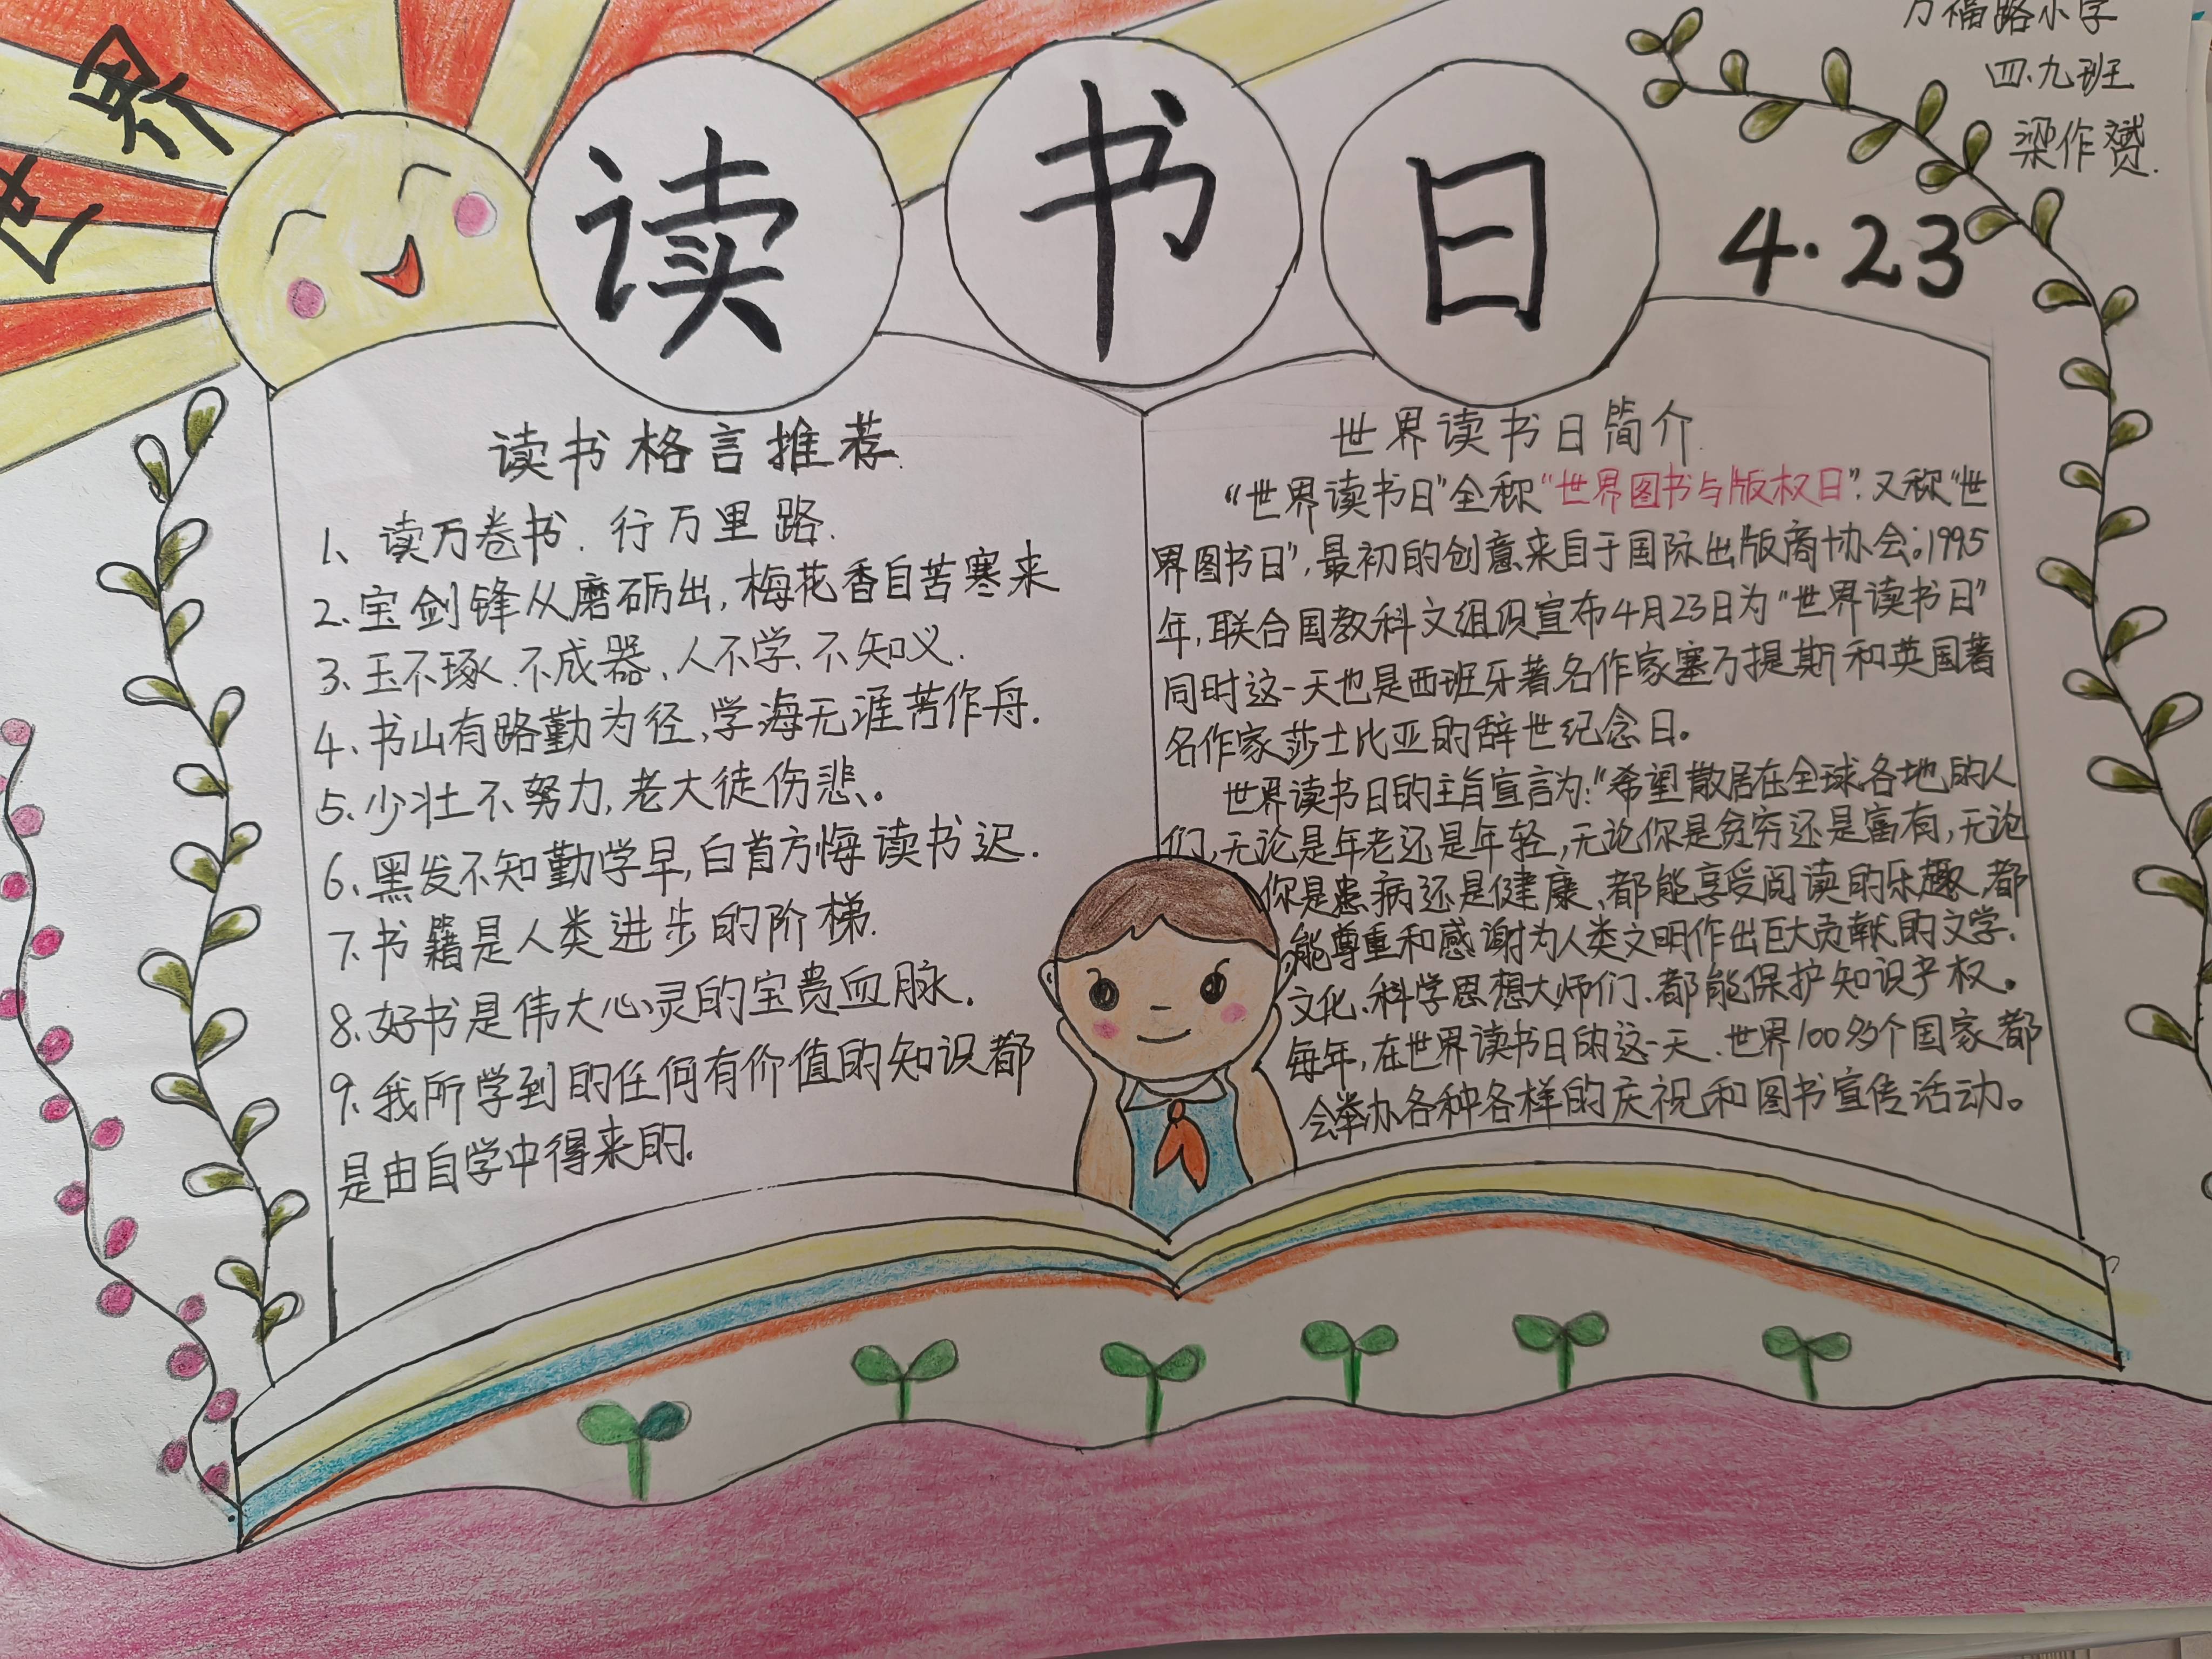 世界
读书日
4.23
万福路小学
四.九班
梁作赟.
读书格言推荐.
1、读万卷书.行万里路.
2.宝剑锋从磨砺出,梅花香自苦寒来
3、玉不琢.不成器、人不学、不知义.
4、书山有路勤为径,学海无涯苦作舟.
5、少壮不努力,老大徒伤悲。
6、黑发不知勤学早,白首方悔读书迟.
7、书籍是人类进步的阶梯.
8、好书是伟大心灵的宝贵血脉.
9、我所学到的任何有价值的知识都
是由自学中得来的.
世界读书日简介
“世界读书日”全称“世界图书与版权日”.又称“世
界图书日”,最初的创意来自于国际出版商协会。1995
年,联合国教科文组织宣布4月23日为“世界读书日”
同时这一天也是西班牙著名作家塞万提斯和英国著
名作家莎士比亚的辞世纪念日。
世界读书日的主旨宣言为:“希望散居在全球各地的人
们,无论是年老还是年轻,无论你是贫穷还是富有,无论
你是患病还是健康、都能享受阅读的乐趣,都
能尊重和感谢为人类文明作出巨大贡献的文学、
文化、科学思想大师们、都能保护知识产权。
每年,在世界读书日的这一天、世界100多个国家都
会举办各种各样的庆祝和图书宣传活动。